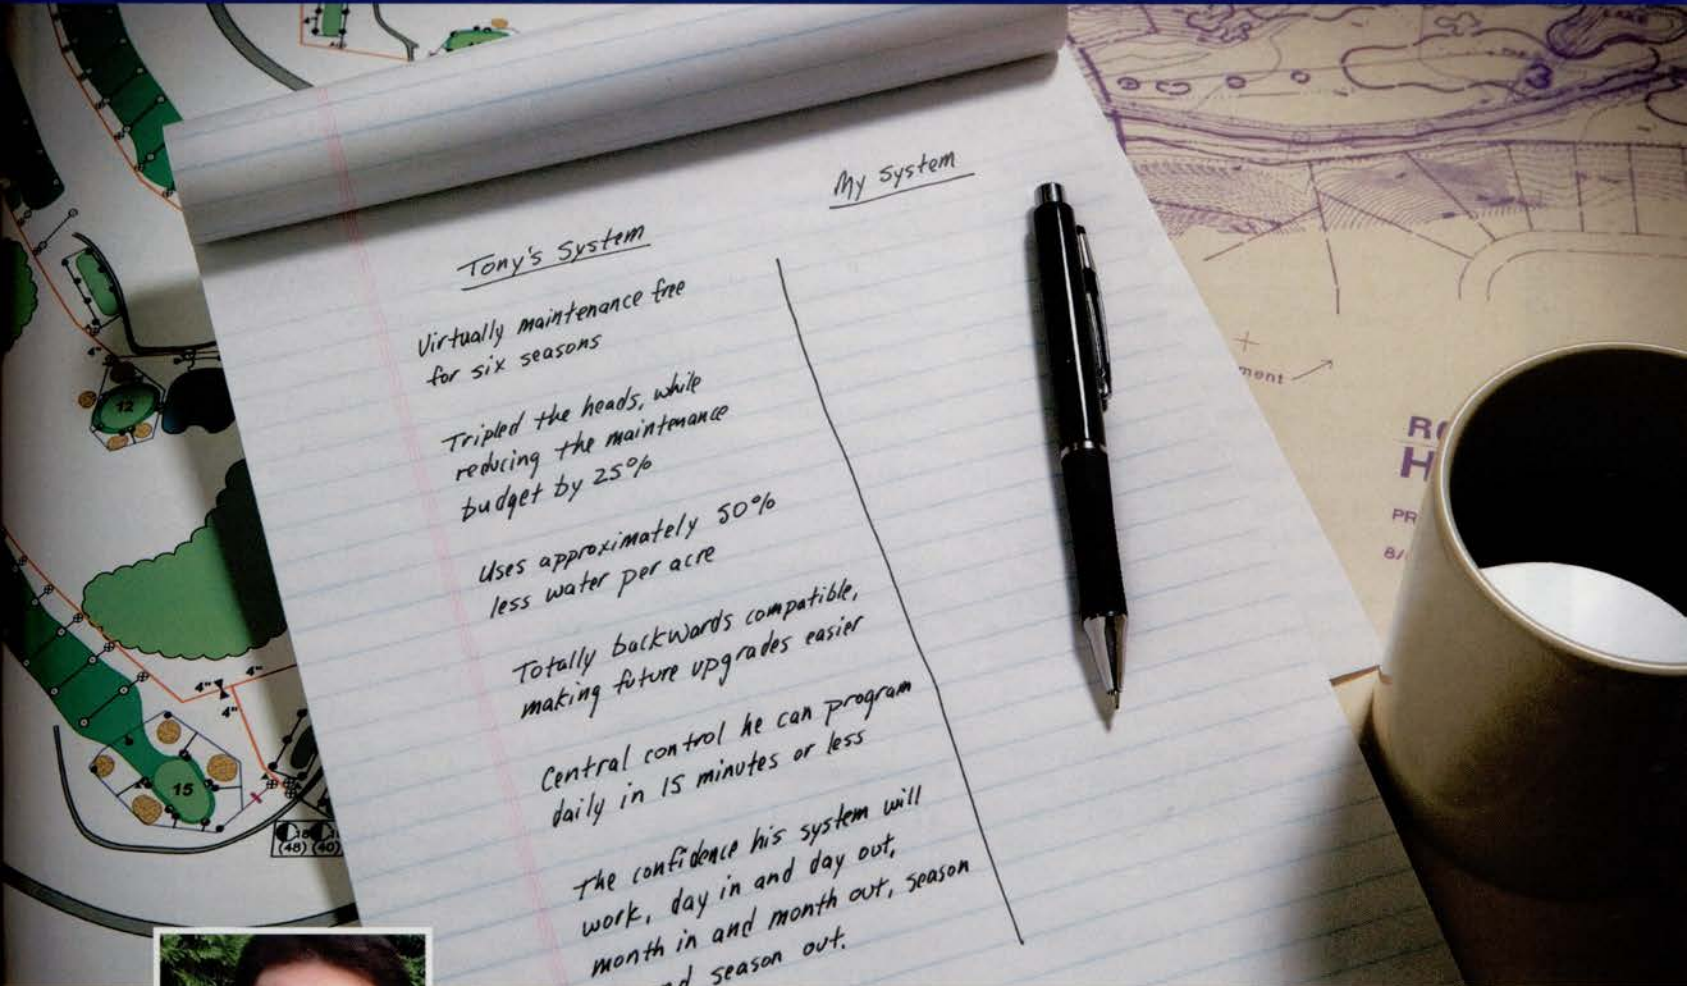 My System
Tony's System
Virtually maintenance free
for six seasons
Tripled the heads, while
reducing the maintenance
budget by 25%
Uses approximately 50%
less water per acre
Totally backwards compatible,
making future upgrades easier
Central control he can program
daily in 15 minutes or less
The confidence his system will
work, day in and day out,
month in and month out, season
season out.
3
12
4"
4"
4"
4"
15
(48) (40)
ment
R
H
PR
8/